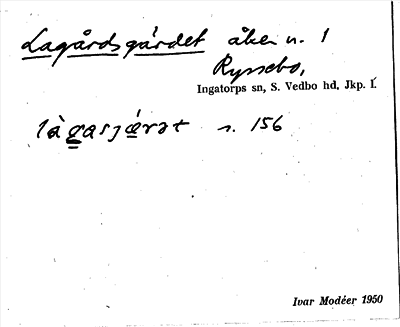 Lagårdsgärdet åker n. 1
Ryssebo,
Ingatorps sn, S. Vedbo hd, Jkp. l.
s. 156
Ivar Modéer 1950